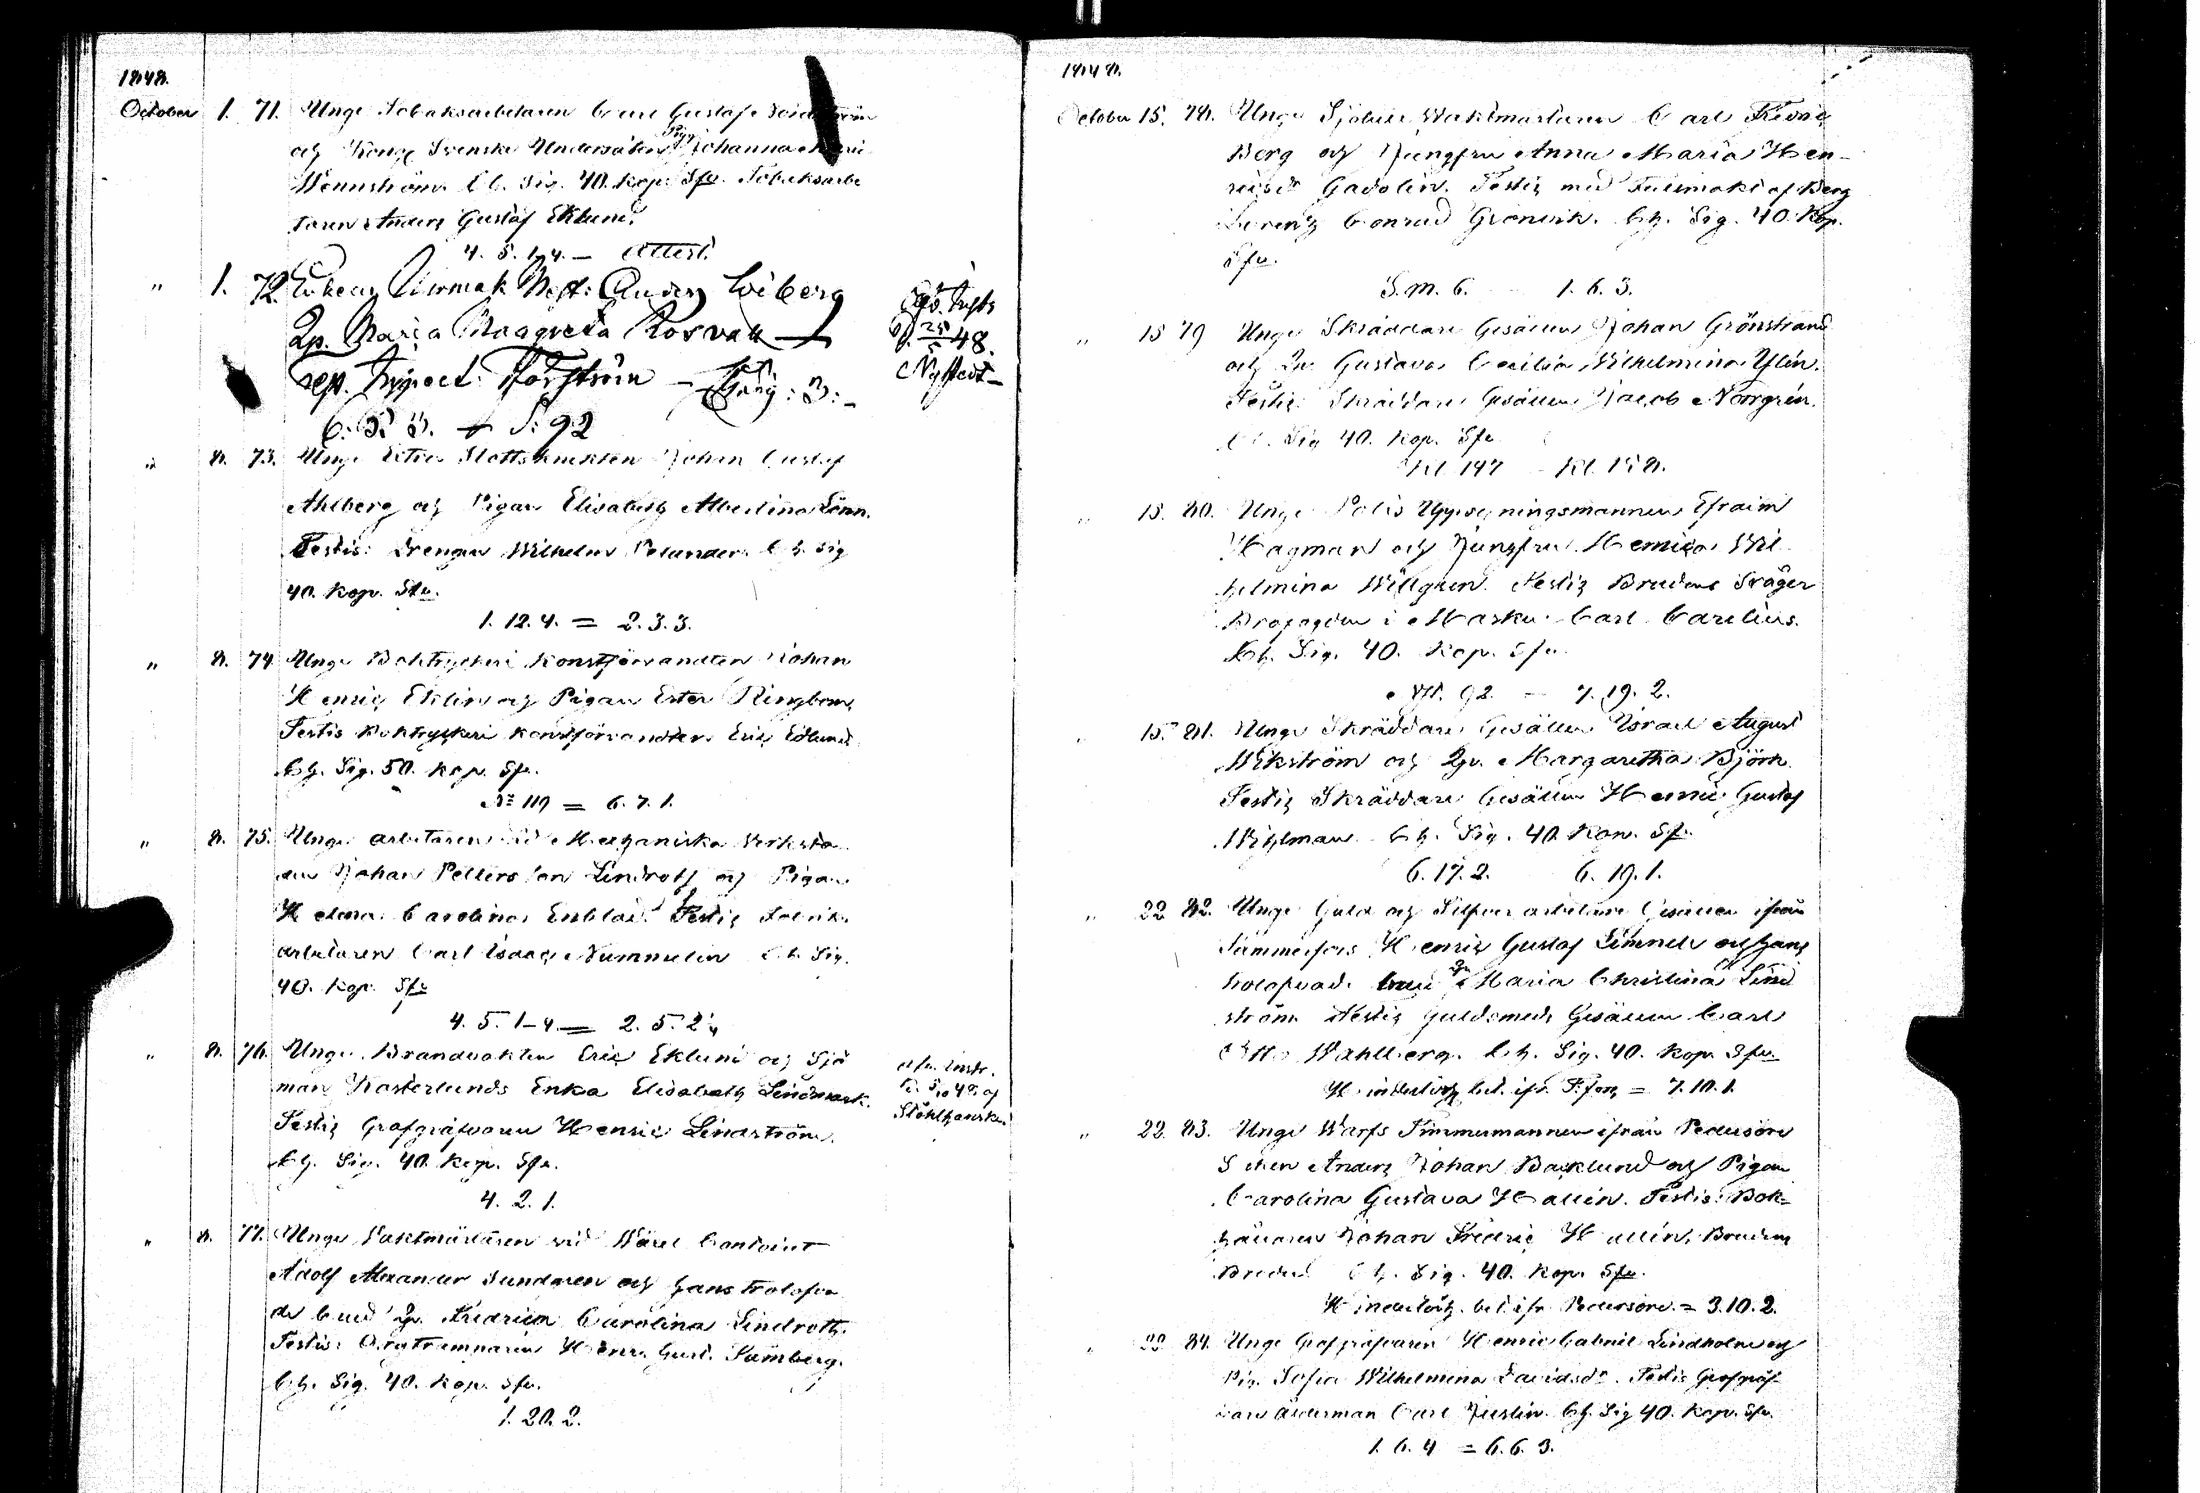 1848.
October 1. 71. Unge Tobaksarbetaren Carl Gustaf
och Kongl Svenska Undersåten Pig. Johanna
Wennström. Ch. Sig. 40. kop. Sfr. Tobaksarbe
taren Anders Gustaf Eklund.
4. 5. 1-4. — Attest.
" 1. 72. Anders Wiberg
Qp. Maria Maagreta Rosvall
resp.
6: 5: 3. + S: 92
48.
Nystedt
" 8. 73. Unge Extra Slottsknekten Johan Gustaf
Ahlberg och Pigan Elisabeth Albertina Lönn.
Testis: Drengen Wilhelm Polander. Ch. Sig
40. kop. Sfr.
1. 12. 4. = 2. 3. 3.
" 8. 74 Unge Boktryckeri Konstförvandten Johan
Henric Eklin och Pigan Ester Ringbom,
Testis Boktryckeri konstförvandten Eric Edlund
Ch. Sig. 50. kop. Sfr.
No 119 = 6. 7. 1.
" 8. 75. Unge arbetaren vid Mechaniska Verksta
den Johan Pettersson Lindroth och Pigan
Helena Carolina Testis Fabriks
arbetaren Carl Isaac Nummelin Ch. Sig.
40. kop. Sfr
4. 5. 1-4. = 2. 5. 2.
" 8. 76. Unge Brandvakten Eric Eklund och Sjö
man Kosterlunds Enka Elisabeth Lindmark.
Testis Grofgräfvaren Henric Lindström.
Ch. Sig. 40. kop. Sfr.
4. 2. 1.
" 8. 77. Unge Vaktmästaren vid
Adolf Alexander Sundgren och hans trolofva
de brud Qp. Fredrica Carolina Lindroth.
Testis: Henr. Gust. Samberg.
Ch. Sig. 40. kop. Sfr.
1. 20. 2.
1848.
October 15. 78. Unge Sjötull Waktmästaren Carl Fredric
Berg och Jungfru Anna Maria Hen-
ricsdr Gadolin. Testis med Fullmakt af Berg
Lorentz Conrad Grönvik. Ch. Sig. 40. Kop.
Sfr.
S. M. 6. 1. 6. 3.
" 15 79 Unge Skräddare Gesällen Johan Grönstrand
och Qp. Gustava Cecilia Wilhelmina Ylén.
Testis: Skräddare Gesällen Jacob Norrgrén.
Ch. Sig 40. kop. Sfr.
Kl. 147 Kl. 158.
" 15. 80. Unge Polis Uppsyningsmannen Efraim
Hagman och Jungfru Henrica Wil
helmina Willgren. Testis Brudens Svåger
Profogden i Masku Carl Carelius.
Ch. Sig. 40. kop. Sfr.
92. — 7. 19. 2.
" 15. 81. Unge Skräddare Gesällen Israel August
Wikström och Qp. Margaretha Björk.
Testis Skräddare Gesällen Henric Gustaf
Wihlman. Ch. Sig. 40 Kop. Sfr.
6. 17. 2. 6. 19. 1.
" 22 82. Unge Guld och Silfver arbetare Gesällen ifrån
Tammerfors Henric Gustaf Limnell och hans
trolofvade brud Qp Maria Christina Lind
ström. Testis Guldsmeds Gesällen Carl
Otto Wahlberg. Ch. Sig. 40. kop. Sfr.
Hinderlösh. bet. ifr. T:fors = 7. 10. 1.
" 22. 83. Unge Warfs Timmermannen ifrån Pedersöre
Socken Anders Johan Backlund och Pigan
Carolina Gustava Hallin. Testis: Bok-
hållaren Johan Fredric Hallin, Brudens
Broder. Ch. Sig. 40. kop. Sfr.
Hinderlösh. bet. ifr. Pedersöre. = 3. 10. 2.
" 22 84. Unge Grofgräfvaren Henric Gabriel Lindholm och
Pig. Sofia Wilhelmina Davidsdr. Testis Grofgräf
vare ålderman Carl Justin. Ch. Sig 40. kop. Sfr.
1. 6. 4 = 6. 6. 3.